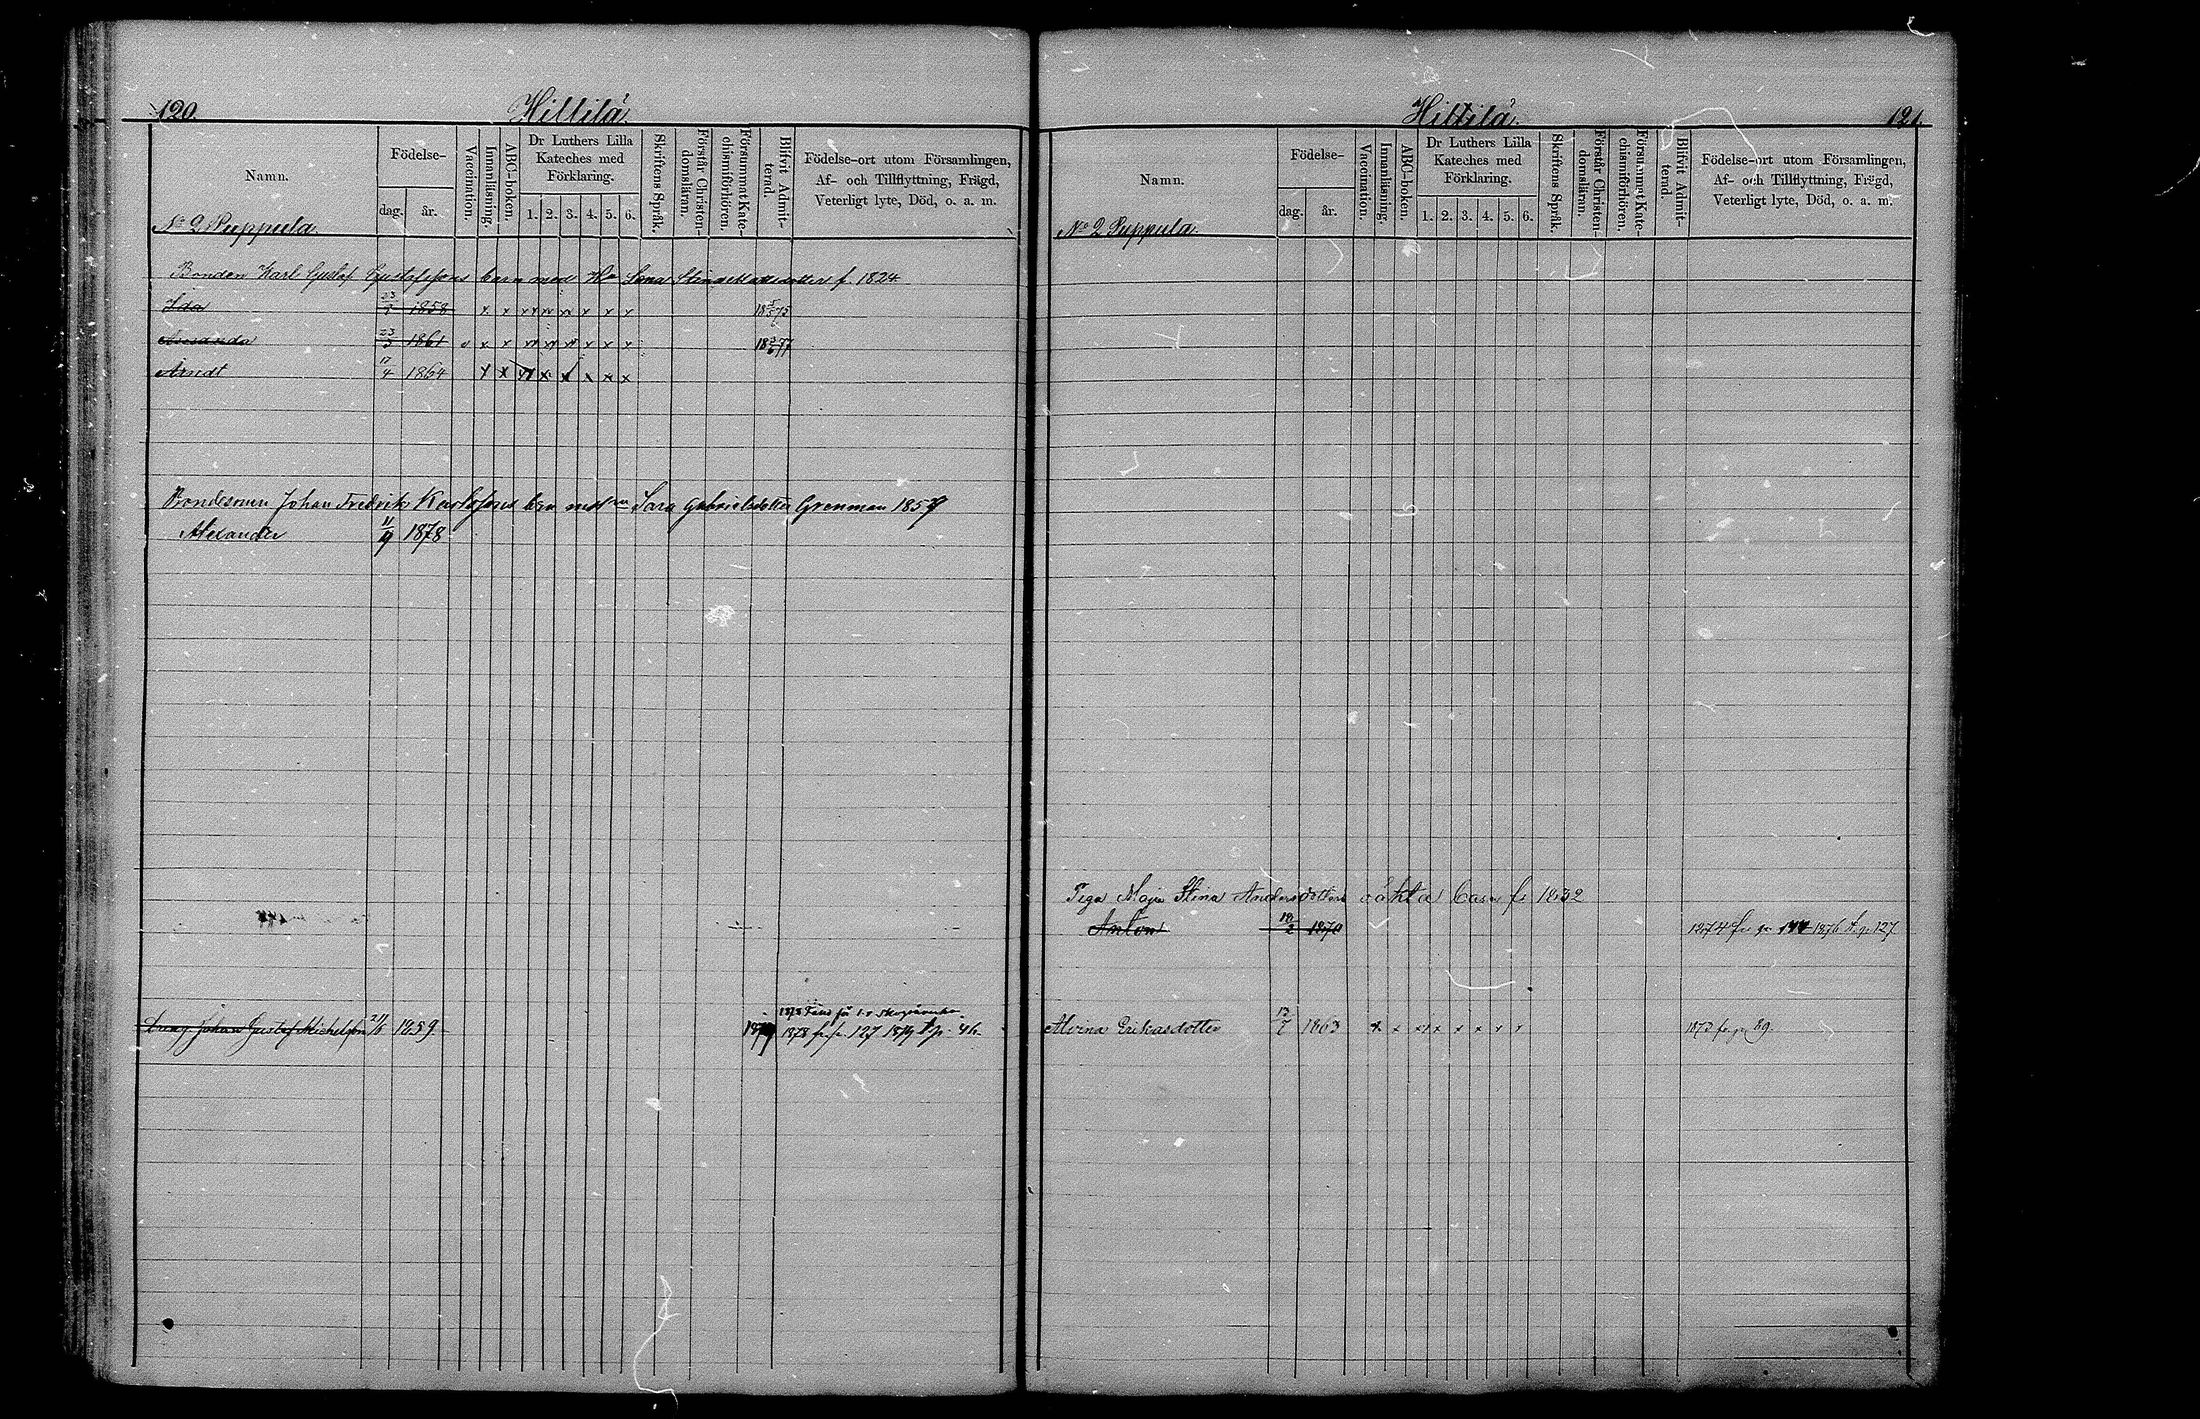 120.
Hillilä
Namn.
Födelse-
dag.
år.
Vaccination.
Innanläsning.
ABC-boken.
Dr Luthers Lilla
Kateches med
Förklaring.
1. 2. 3. 4. 5. 6.
Skriftens Språk.
Förstår Christen-
domsläran.
Försummat Kate-
chismiförhören.
Blifvit Admit-
terad.
Födelse-ort utom Församlingen,
Af- och Tillflyttning, Frägd,
Veterligt lyte, Död, o. a. m.
No 2 Puppula.
Bonden Karl Gustaf Gustafssons barn med Hu Lena f. 1824
Ida 23/9 1858 x x x x x x x x 18 75
Amanda 23/3 1861 x x x x x x x 18 77
Arndt 17/4 1864 x x x x x x x x
Bondesonen Johan Fredrik barn med Sara Gabrielsdotter Grenman 1857
Alexander 11/9 1878
1878
Dräng Johan Gustaf Michelsson 21/5 1859 1879 1878 fr. p. 127 1879 t. p. 46
121.
Hillilä.
Namn.
Födelse-
dag.
år.
Vaccination.
Innanläsning.
ABC-boken.
Dr Luthers Lilla
Kateches med
Förklaring.
1. 2. 3. 4. 5. 6.
Skriftens Språk.
Förstår Christen-
domsläran.
Försummat Kate-
chismiförhören.
Blifvit Admit-
terad.
Födelse-ort utom Församlingen,
Af- och Tillflyttning, Frägd,
Veterligt lyte, Död, o. a. m.
No 2 Puppula.
Piga Maja Stina Andersdotters oäkta barn f. 1832
Anton 18/2 1870 1874 fr p 144 1876 t. p. 127
Alvina Eriksdotter 13/7 1863 x x x x x x x x 1873 fr. p. 89.